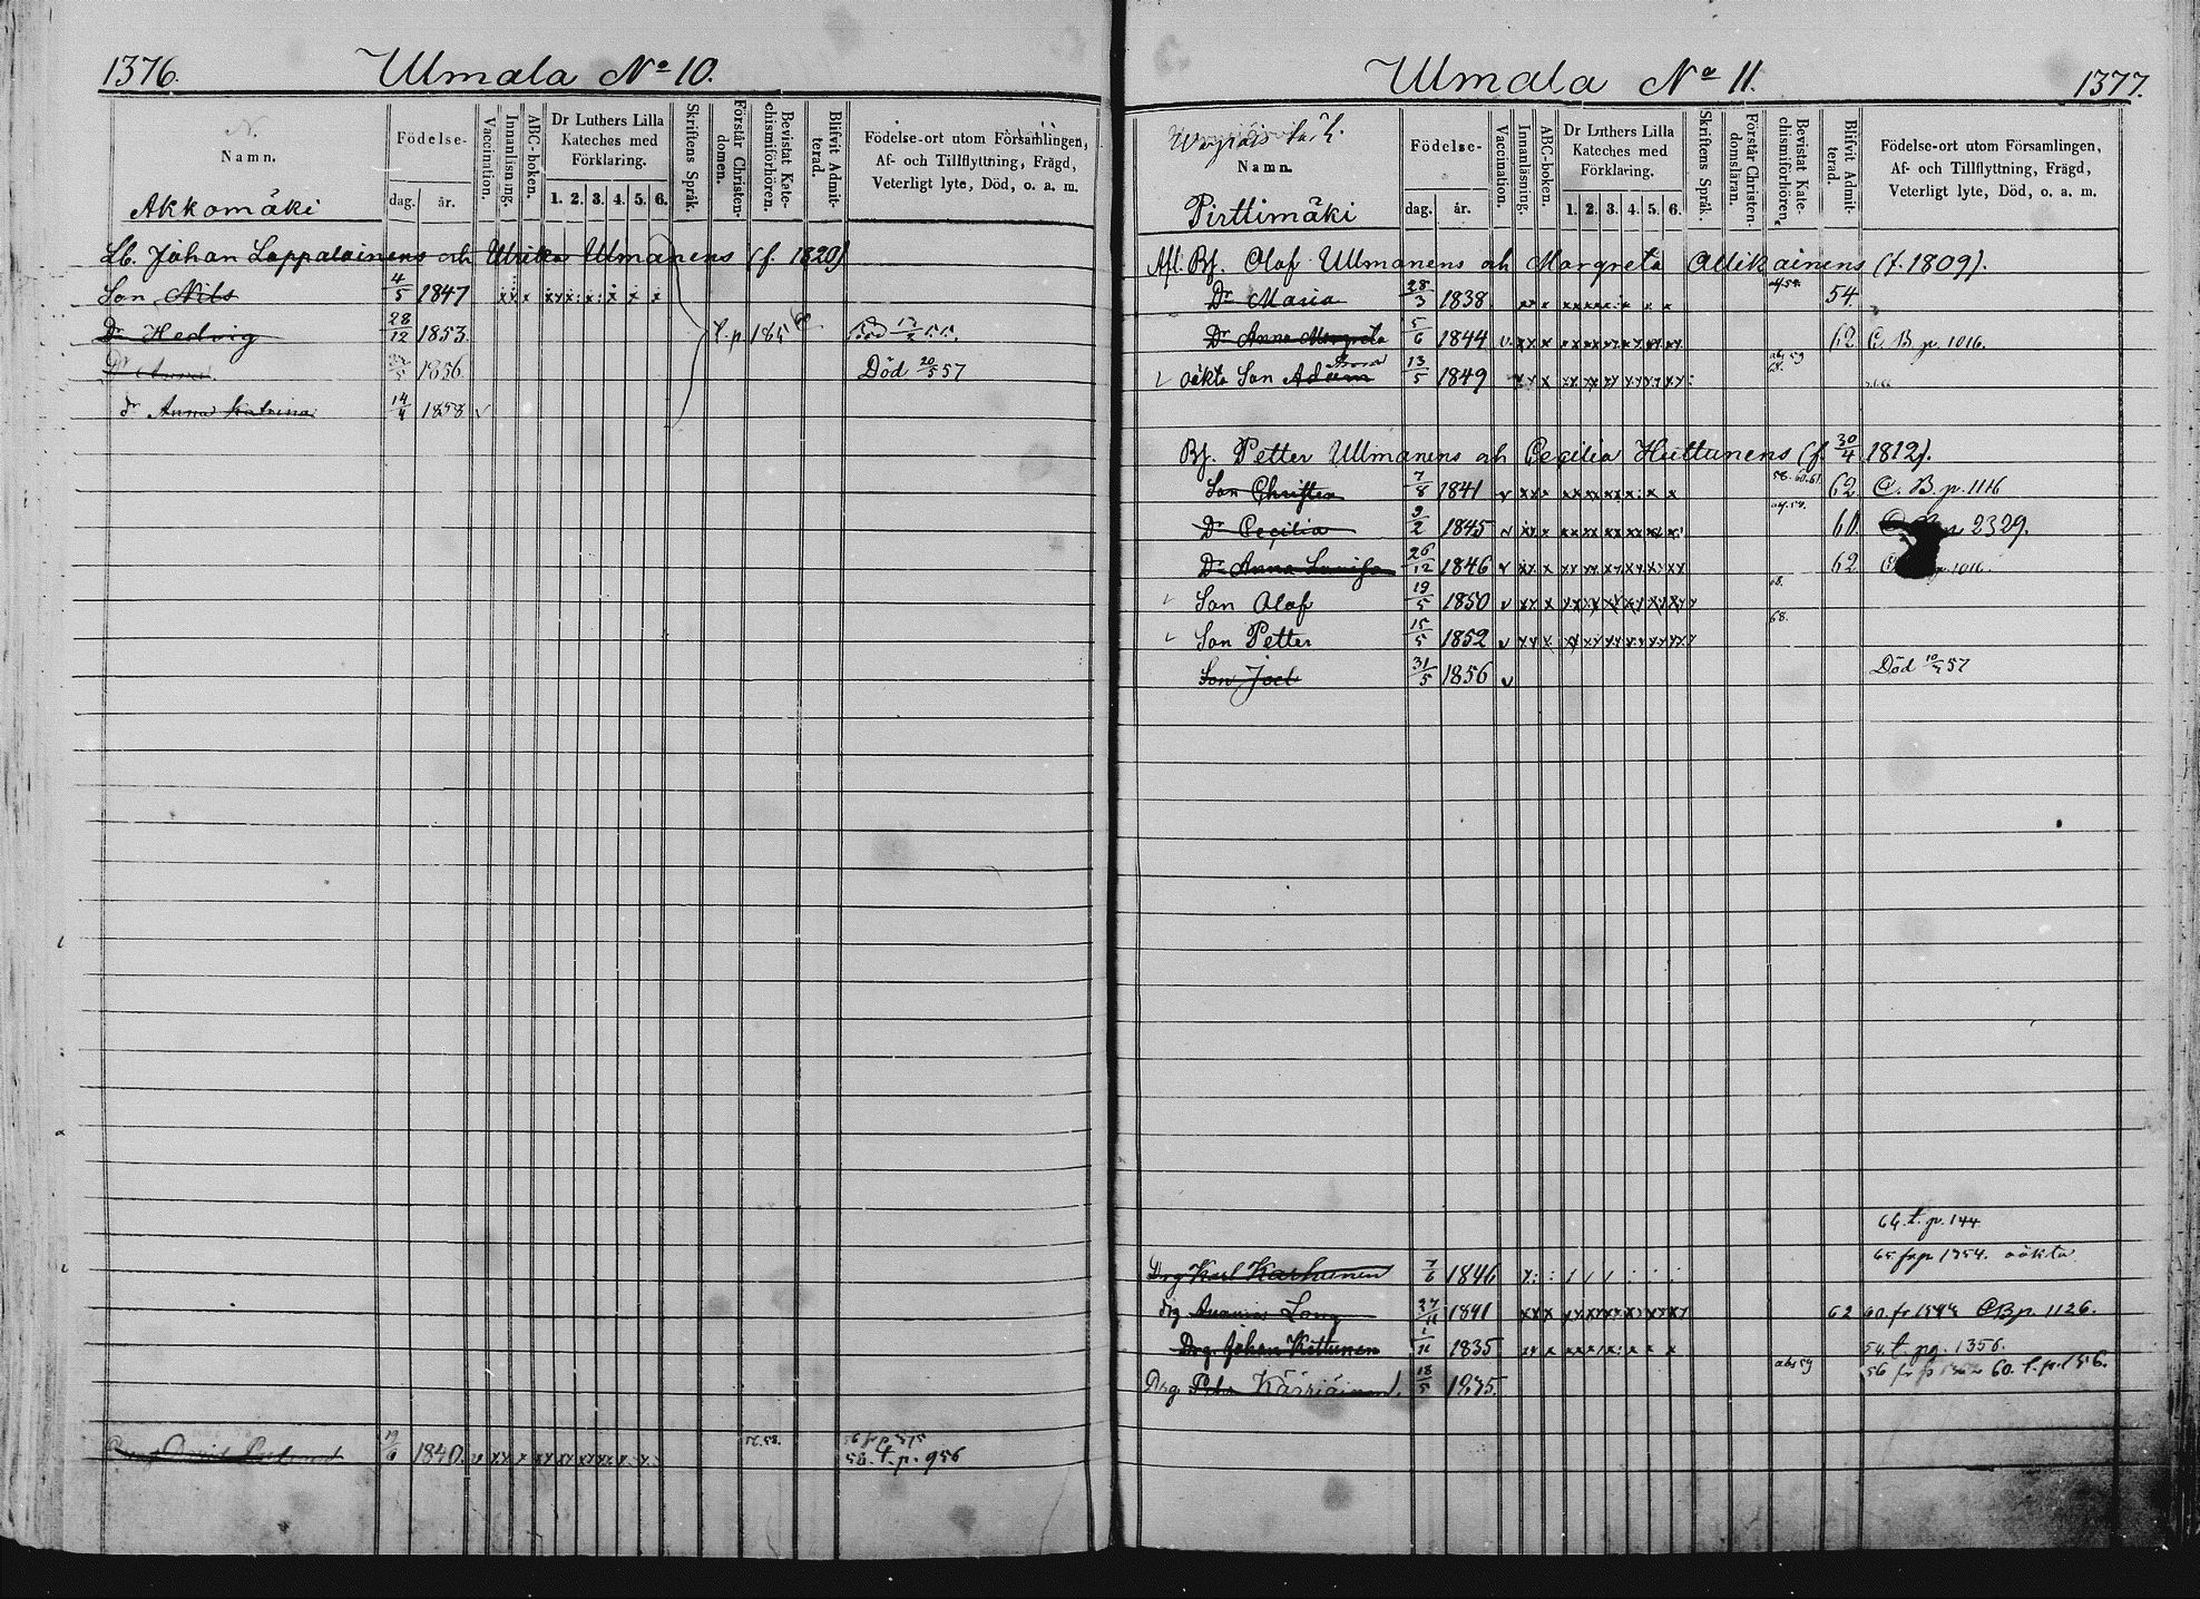 1376.
Ulmala No 10.
Namn.
Akkomäki
Födelse-
dag.
år.
Vaccination.
Innanläsning.
ABC-boken.
Dr Luthers Lilla
Kateches med
Förklaring.
1. 2. 3. 4. 5. 6.
Skriftens Språk.
Förstår Christen-
domen.
Bevistat Kate-
chismiförhören.
Blifvit Admit-
terad.
Födelse-ort utom Församlingen,
Af- och Tillflyttning, Frägd,
Veterligt lyte, Död, o. a. m.
Lb. Johan Lappalainens och Ulrika Ulmanens (f. 1820)
Son Nils 4/5 1847
Dr Hedvig 28/12 1853.
Dr Anna 1856 Död 20/5 57
dr Anna Katrina 14/4 1858 v
19/6 1840. v 57.58. 56 fr p 575
58. t. p. 956
Ulmala No 11.
1377.
Namn.
Pirttimäki
Födelse-
dag.
år.
Vaccination.
Innanläsning.
ABC-boken.
Dr Luthers Lilla
Kateches med
Förklaring.
1. 2. 3. 4. 5. 6.
Skriftens Språk.
Förstår Christen-
domsläran.
Bevistat Kate-
chismiförhören.
Blifvit Admit-
terad.
Födelse-ort utom Församlingen,
Af- och Tillflyttning, Frägd,
Veterligt lyte, Död, o. a. m.
Afl. Bf. Olof Ullmanens och Margreta Ollikainens (f. 1809).
Dr Maria 28/3 1838 54.
Dr Anna Margreta 5/6 1844 v 62 C. B p. 1016.
oäkta Son Adam 13/5 1849
Bf. Petter Ullmanens och Cecilia Huttunens (f. 30/4 1812).
Son Christer 7/8 1841 v 58. 60. 61. 62 C. B. p. 1116
Dr Cecilia 9/2 1845 v 60. 2329.
Dr Anna Lovisa 26/12 1846 v 62 p. 1016.
Son Olof 19/5 1850 v 68.
Son Petter 15/5 1852 v 68.
Son Joel 31/5 1856 v Död 10/5 57
64. t. p. 144
65. fr p 1354. oäkta
Drg Karl Karhunen 7/6 1846
drg Long 27/11 1841 62 CB p. 1126.
Drg. Johan Kettunen 1835 54. t. pg. 1356.
Drg Kärriäinen 18/5 abs 59 60. t. p. 156.